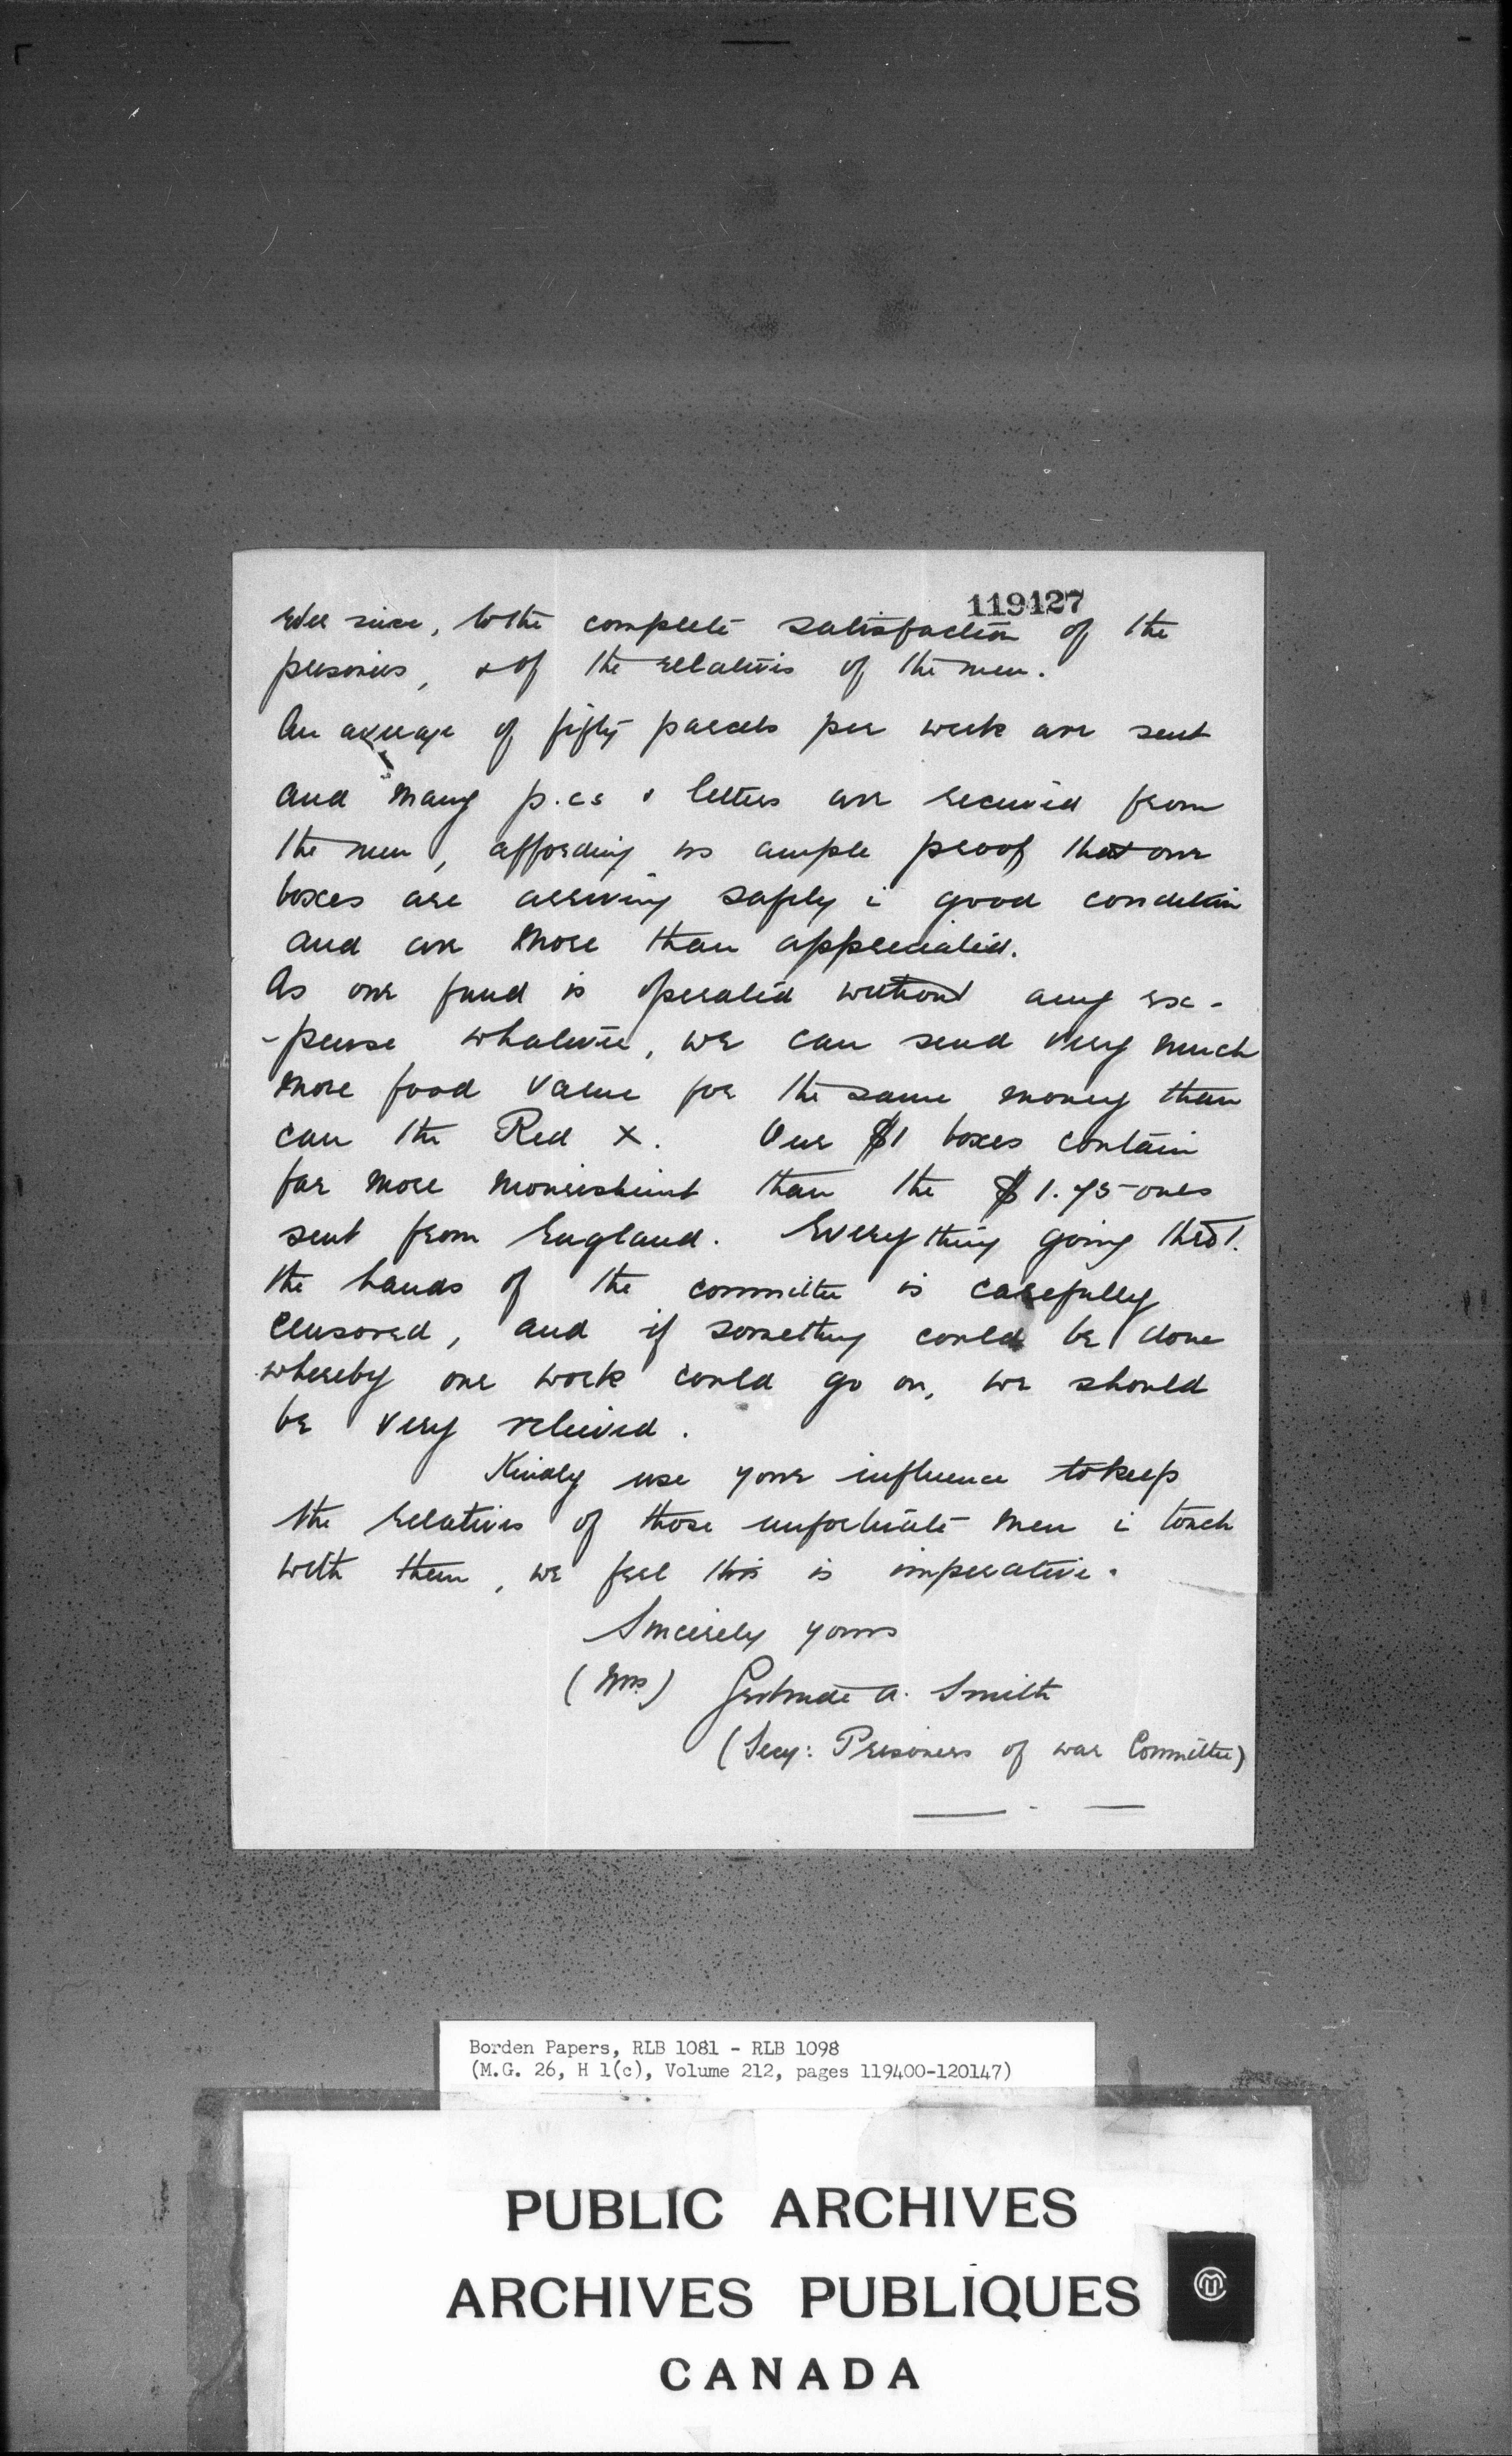 119127
ever since, to the complete satisfaction of the
prisoners, & of the relatives of the men.
An average of fifty parcels per week are sent
and many p.cs & letters are received from
the men, affording us ample proof that our
boxes are arriving safely i good condition
and are more than appreciated.
As our fund is operated without any ex-
-pense whatever, we can send very much
more food value for the same money than
can the Red X. Our $1 boxes contain
far more nourishment than the $1.75 ones
sent from England. Everything going thro'.
the hands of the committee is carefully
censored, and if something could be done
whereby our work could go on, we should
be very relieved.
Kindly use your influence to keep
the relatives of those unfortunate men i touch
with them, we feel this is imperative.
Sincerely yours
(Mrs) Gertrude A. Smith
(Secy: Prisoners of war Committee)
Borden Papers, RLB 1081 - RLB 1098
(M.G. 26, H 1(c), Volume 212, pages 119400-120147)
PUBLIC ARCHIVES
ARCHIVES PUBLIQUES
CANADA